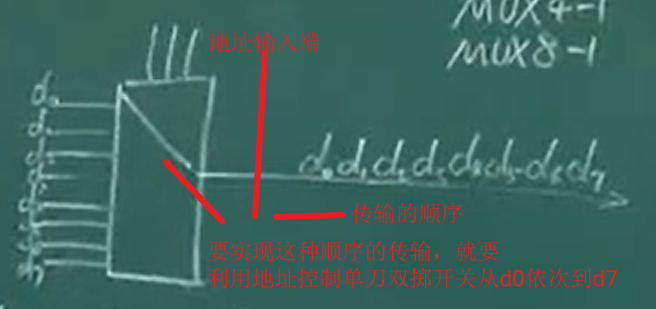 MUX4-1
MUX8-1
地址输入端
d0
d7
d0d1d2d3d4d5d6d7
传输的顺序
要实现这种顺序的传输，就要
利用地址控制单刀双掷开关从d0依次到d7